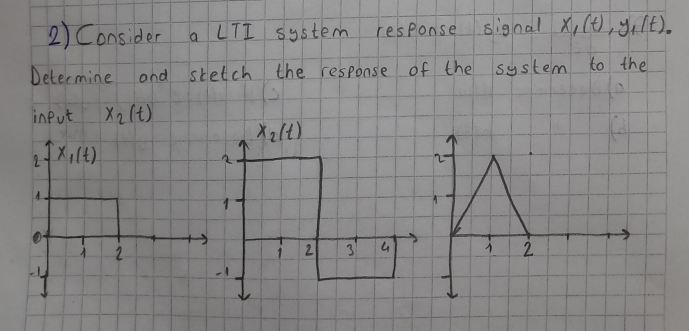 2) Consider a LTI system response signal x₁(t), y₁(t).
Determine and sketch the response of the system to the
input x₂(t)
x₁(t)
2
1
0
-1
1 2
x₂(t)
2
1
-1
1 2 3 4
2
1
1 2